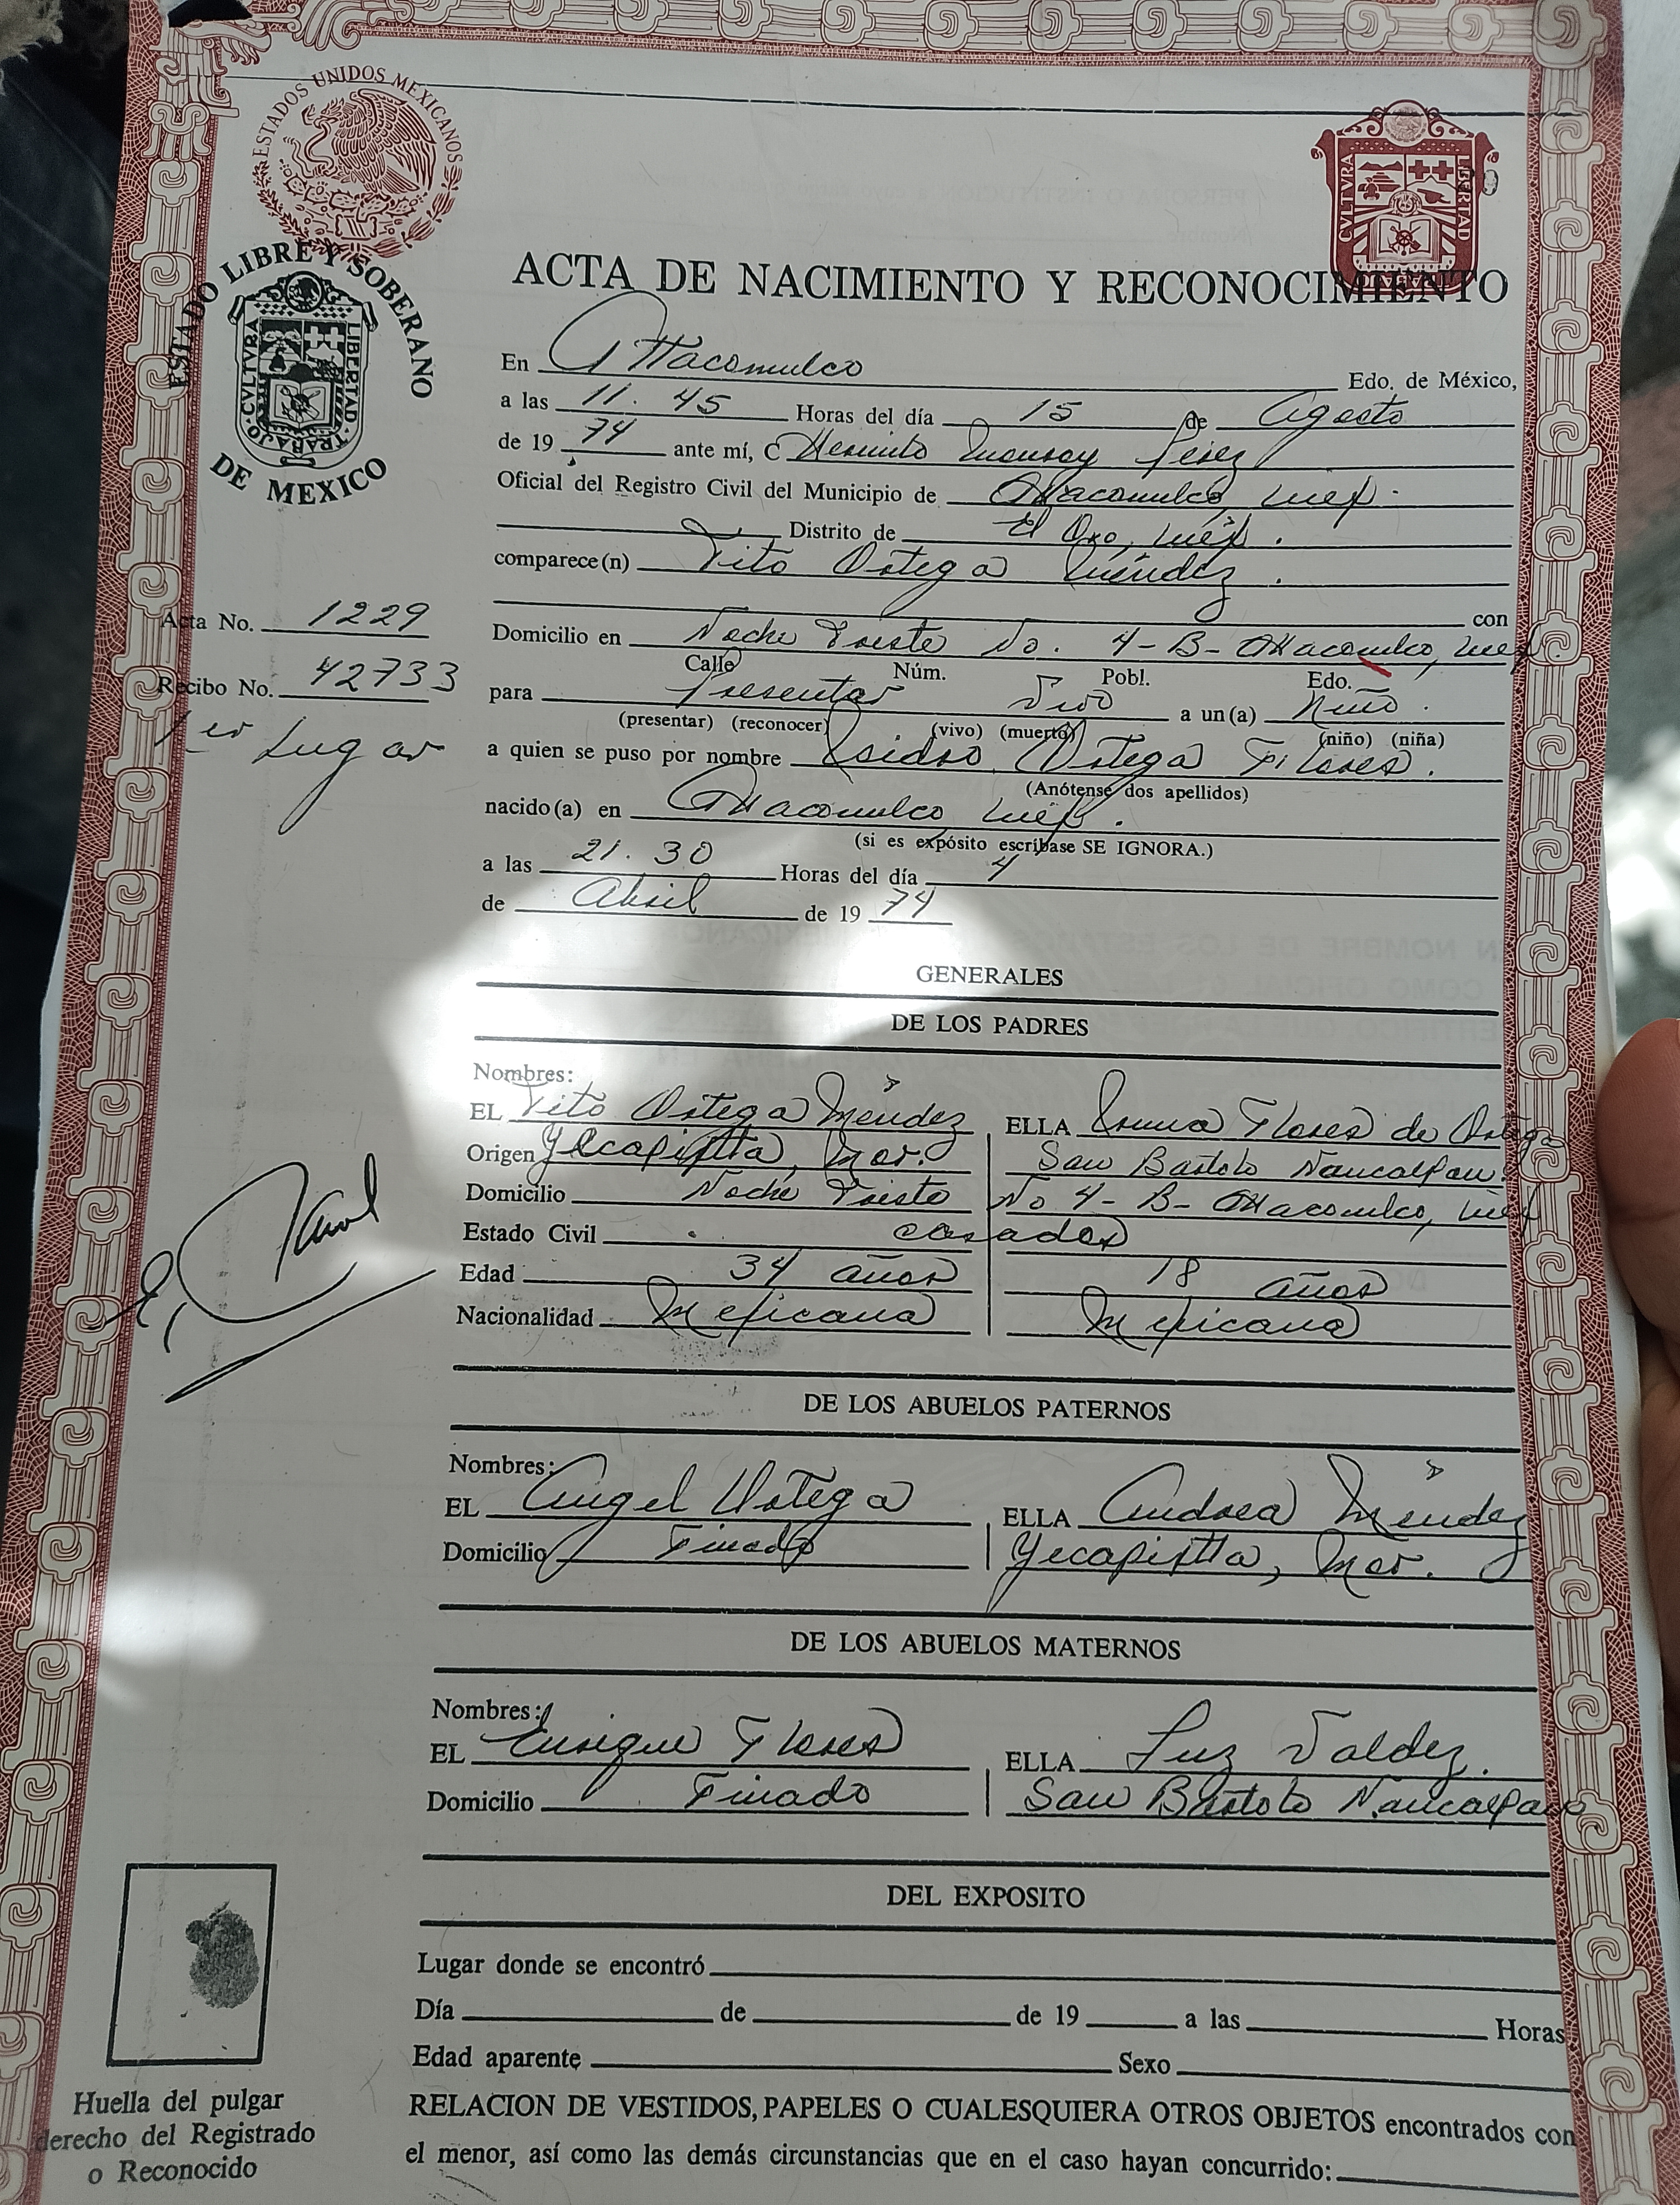 ESTADOS UNIDOS MEXICANOS
CULTURA LIBERTAD
ESTADO LIBRE Y SOBERANO
CULTURA TRABAJO LIBERTAD
DE MEXICO
ACTA DE NACIMIENTO Y RECONOCIMIENTO
En Atlacomulco Edo. de México,
a las 11.45 Horas del día 15 de Agosto
de 1974 ante mí, C Pérez
Oficial del Registro Civil del Municipio de Atlacomulco, Méx.
Distrito de El Oro, Méx.
comparece(n) Tito Ortega Méndez.
con
Acta No. 1229
Domicilio en Noche Triste No. 4-B- Atlacomulco, Méx.
Calle Núm. Pobl. Edo.
Recibo No. 42733
para Presentar Vivo a un(a) Niño.
(presentar) (reconocer) (vivo) (muerto) (niño) (niña)
1er Lugar
a quien se puso por nombre Isidro Ortega Flores.
(Anótense dos apellidos)
nacido(a) en Atlacomulco Méx.
(si es expósito escríbase SE IGNORA.)
a las 21.30 Horas del día 4
de Abril de 1974
GENERALES
DE LOS PADRES
Nombres:
EL Tito Ortega Méndez ELLA Flores de Ortega
Origen Yecapixtla, Mor. San Bartolo Naucalpan
Domicilio Noche Triste No 4-B- Atlacomulco, Méx
Estado Civil casados
Edad 34 años 18 años
Nacionalidad Mexicana Mexicana
DE LOS ABUELOS PATERNOS
Nombres:
EL Angel Ortega ELLA Andrea Méndez
Domicilio Finado Yecapixtla, Mor.
DE LOS ABUELOS MATERNOS
Nombres:
EL Enrique Flores ELLA Luz Valdez.
Domicilio Finado San Bartolo Naucalpan
DEL EXPOSITO
Lugar donde se encontró
Día de de 19 a las Horas
Edad aparente Sexo
Huella del pulgar
derecho del Registrado
o Reconocido
RELACION DE VESTIDOS, PAPELES O CUALESQUIERA OTROS OBJETOS encontrados con
el menor, así como las demás circunstancias que en el caso hayan concurrido: